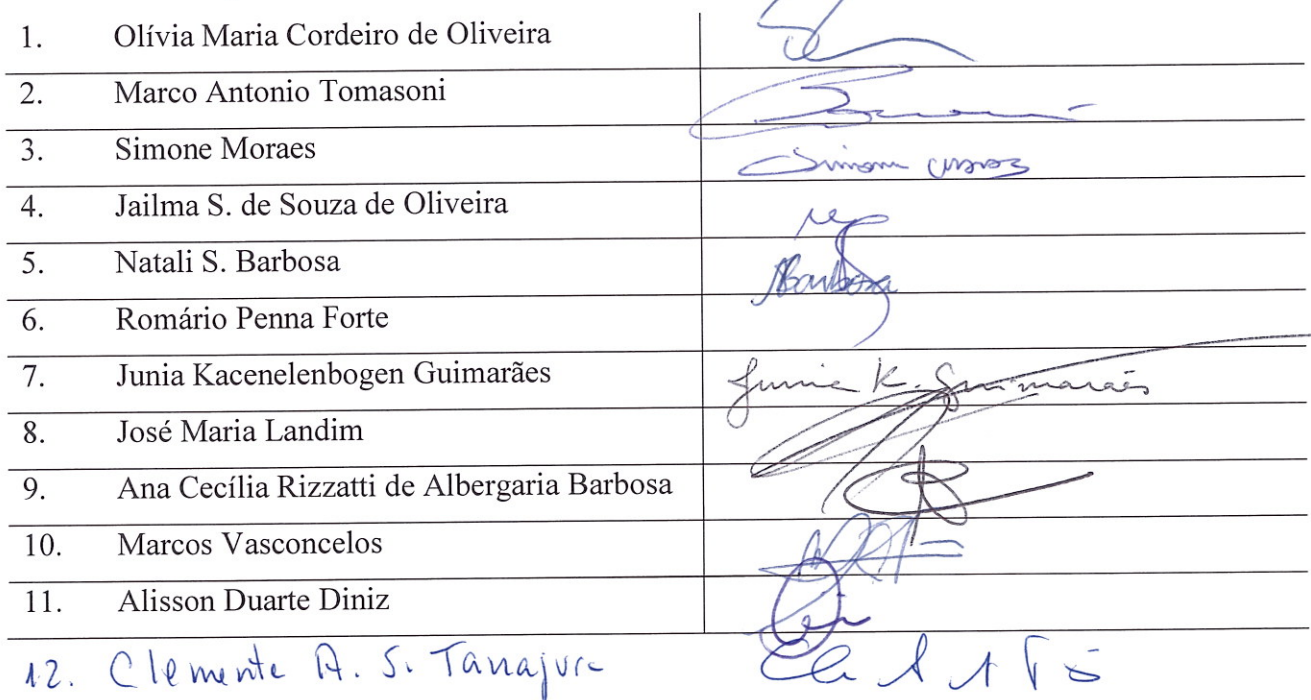 1. Olívia Maria Cordeiro de Oliveira
2. Marco Antonio Tomasoni
3. Simone Moraes
4. Jailma S. de Souza de Oliveira
5. Natali S. Barbosa NBarbosa
6. Romário Penna Forte
7. Junia Kacenelenbogen Guimarães Junia K. Guimarães
8. José Maria Landim
9. Ana Cecília Rizzatti de Albergaria Barbosa
10. Marcos Vasconcelos
11. Alisson Duarte Diniz
12. Clemente A. S. Tanajura